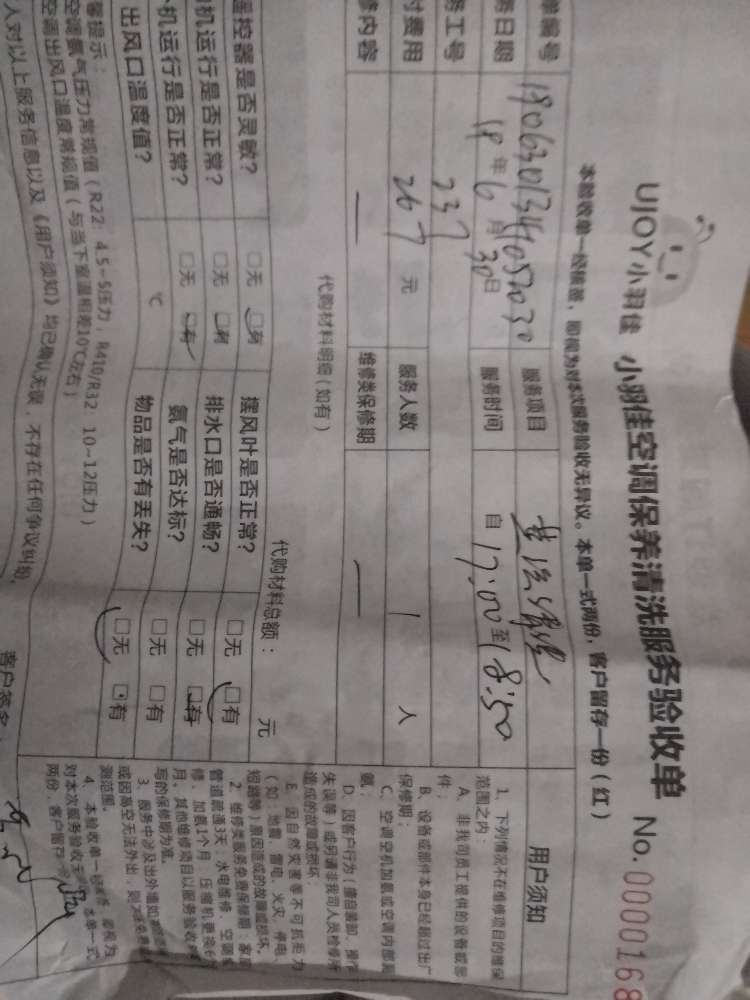 UJOY小羽佳 小羽佳空调保养清洗服务验收单 No.0000168
本验收单一经核签，即视为对本次服务验收无异议。本单一式两份，客户留存一份（红）
单编号 服务项目
务日期 18年6月30日 服务时间 自17:00至18:50
务工号 237
付费用 267 元 服务人数 1 人
修内容 — 维修类保修期 —
代购材料明细（如有）
代购材料总额： 元
遥控器是否灵敏? □无 □有 摆风叶是否正常? □无 □有
机运行是否正常? □无 □有 排水口是否通畅? □无 □有
机运行是否正常? □无 □有 氨气是否达标? □无 □有
出风口温度值? ℃ 物品是否有丢失? □无 □有
馨提示：
空调氨气压力常规值（R22：4.5-5压力，R410/R32：10-12压力）
空调出风口温度常规值（与当下室温相差10℃左右）
人对以上服务信息以及《用户须知》均已确认无误，不存在任何争议纠纷。
客户签名：
用户须知
1、下列情况不在维修项目的维保
范围之内：
A、非我司员工提供的设备或部
件；
B、设备或部件本身已经超过出厂
保修期；
C、空调空机加氨或空调内部漏
氨；
D、因客户行为（擅自装卸、操作
失误等）或另请非我司人员检修所
造成的故障或损坏；
E、因自然灾害等不可抗拒力
（如：地震、雷电、火灾、停电、
短路等）原因造成的故障或损坏。
2、维修类服务免费保修期：家庭
管道疏通3天，水电维修、空调
修、加氨1个月，压缩机更换6
月。其他维修项目以服务验收单
写的保修期为准。
3、服务中涉及出外墙如
或因高空无法外出，则
测范围。
4、本验收单一经核签，即视为
对本次服务验收无 本单一式
两份，客户留存一份